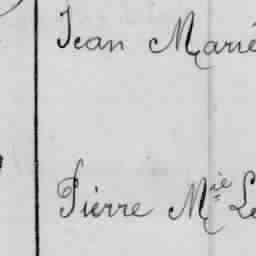 Jean Marie
Pierre Mie Le